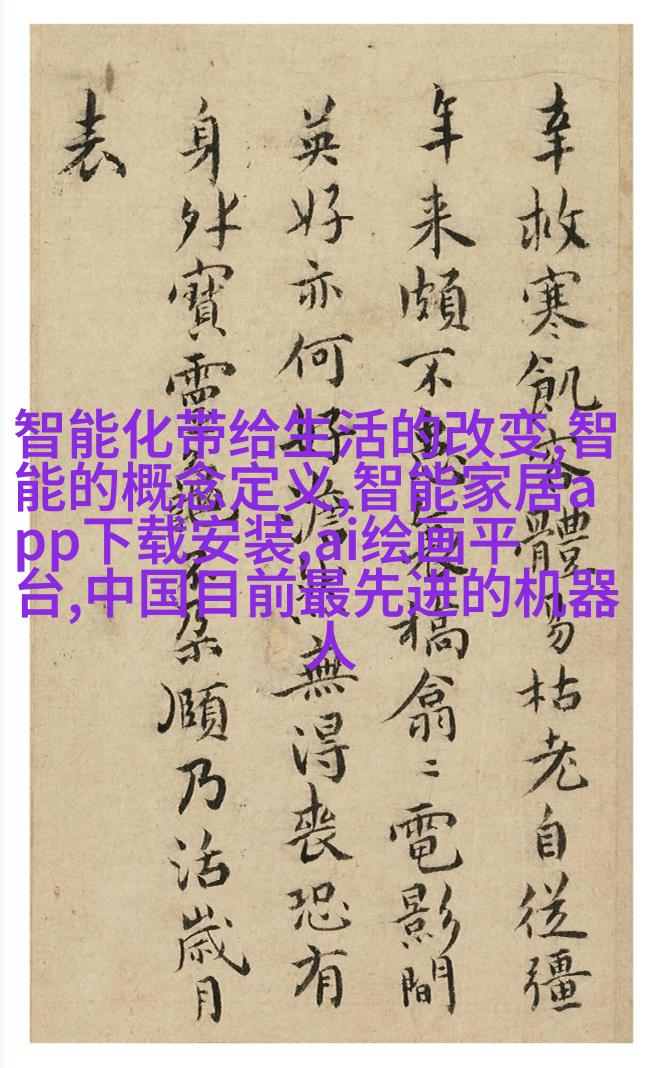 幸救寒飢容體易枯老自從彊
年来頗不衰槁翕〻電影間
英好亦何好澹無得丧恐有
身外寳靈不朶頤乃活歲月
表
智能化带给生活的改变,智
能的概念定义,智能家居a
pp下载安装,ai绘画平
台,中国目前最先进的机器
人